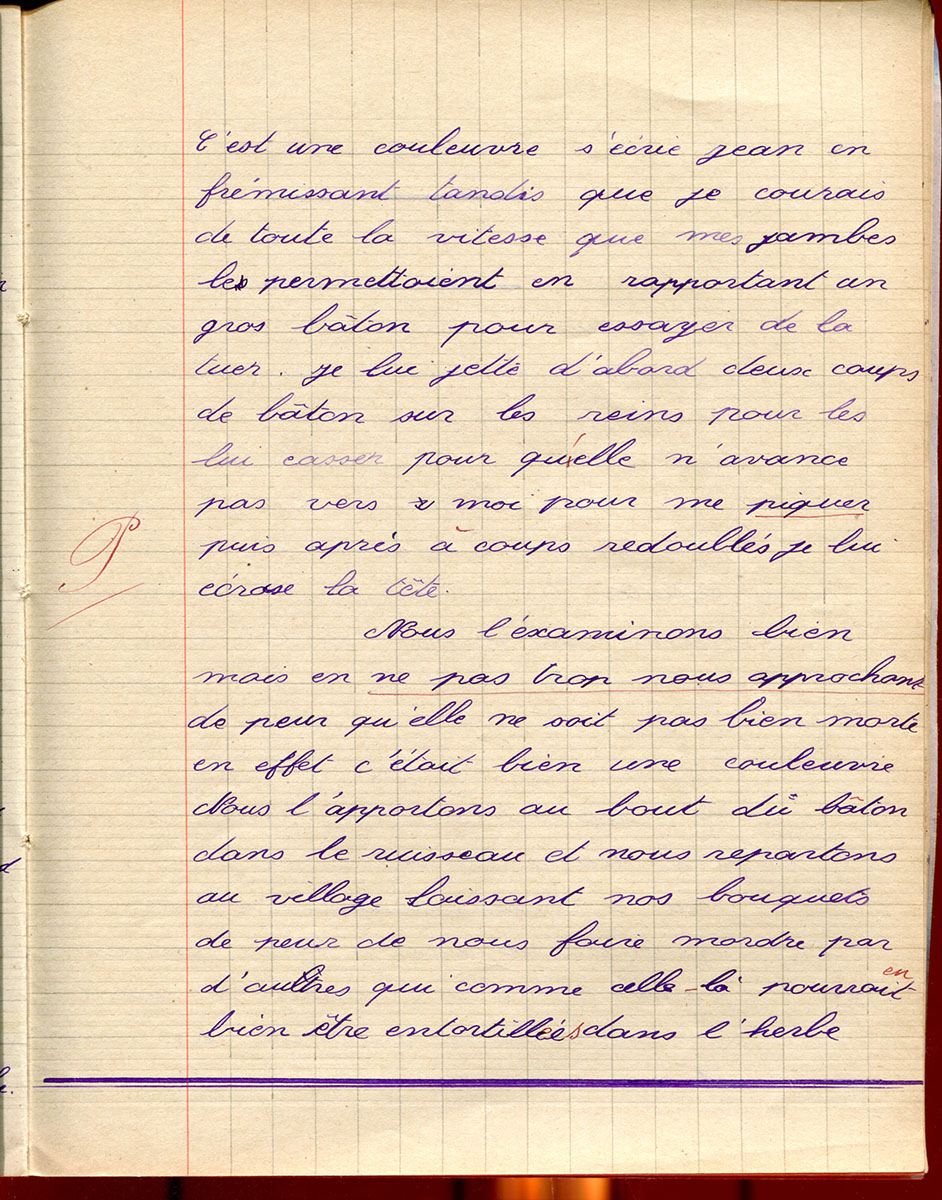 C'est une couleuvre s'écrie jean en
frémissant tandis que je courais
de toute la vitesse que mes jambes
les permettaient en rapportant un
gros bâton pour essayer de la
tuer. je lui jette d'abord deux coups
de bâton sur les reins pour les
lui casser pour qu'elle n'avance
pas vers moi pour me piquer
puis aprés à coups redoublés je lui
écrase la tête.
P
Nous l'éxaminons bien
mais en ne pas trop nous approchant
de peur qu'elle ne soit pas bien morte
en effet c'était bien une couleuvre
Nous l'apportons au bout du bâton
dans le ruisseau et nous repartons
au village laissant nos bouquets
de peur de nous faire mordre par
d'autres qui comme celle-là pourrait
en
bien être entortillées dans l'herbe